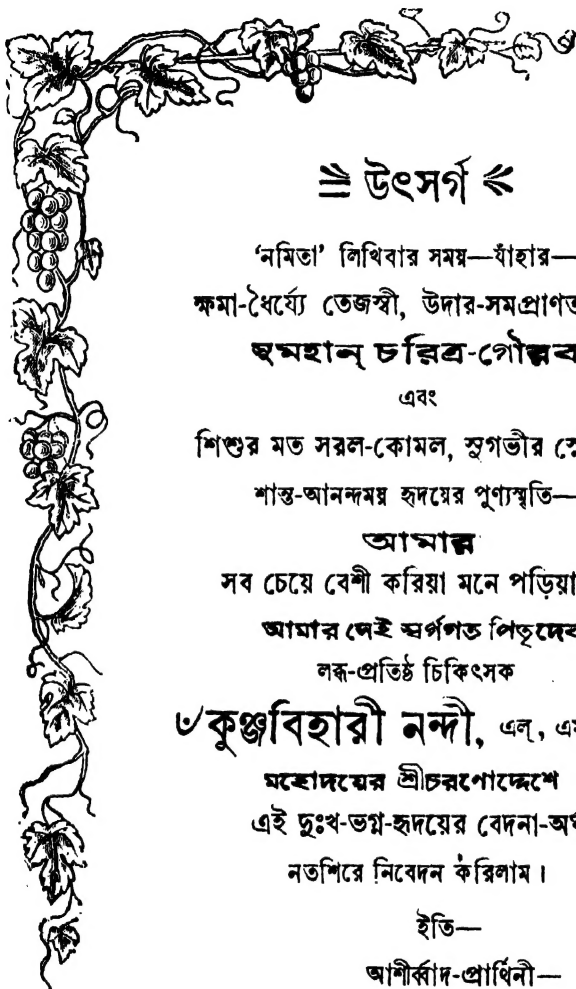 উৎসর্গ
‘নমিতা’ লিখিবার সময়—যাঁহার—
ক্ষমা-ধৈর্য্যে তেজস্বী, উদার-সমপ্রাণত
সুমহান্ চরিত্র-গৌরব
এবং
শিশুর মত সরল-কোমল, সুগভীর স্নে
শান্ত-আনন্দময় হৃদয়ের পুণ্যস্মৃতি—
আমার
সব চেয়ে বেশী করিয়া মনে পড়িয়া
আমার সেই স্বর্গগত পিতৃদেব
লব্ধ-প্রতিষ্ঠ চিকিৎসক
৺কুঞ্জবিহারী নন্দী, এল্, এ
মহোদয়ের শ্রীচরণোদ্দেশে
এই দুঃখ-ভগ্ন-হৃদয়ের বেদনা-অ
নতশিরে নিবেদন করিলাম।
ইতি—
আশীর্ব্বাদ-প্রার্থিনী—